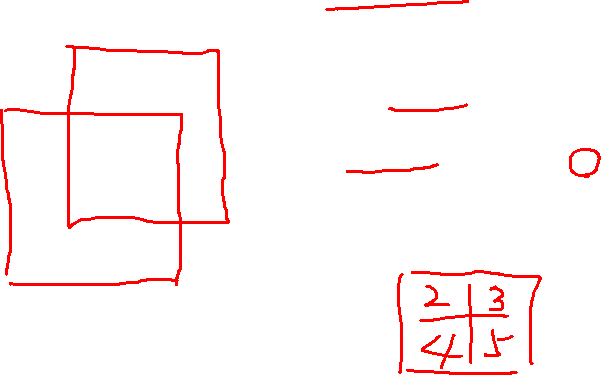 2 3
4 5